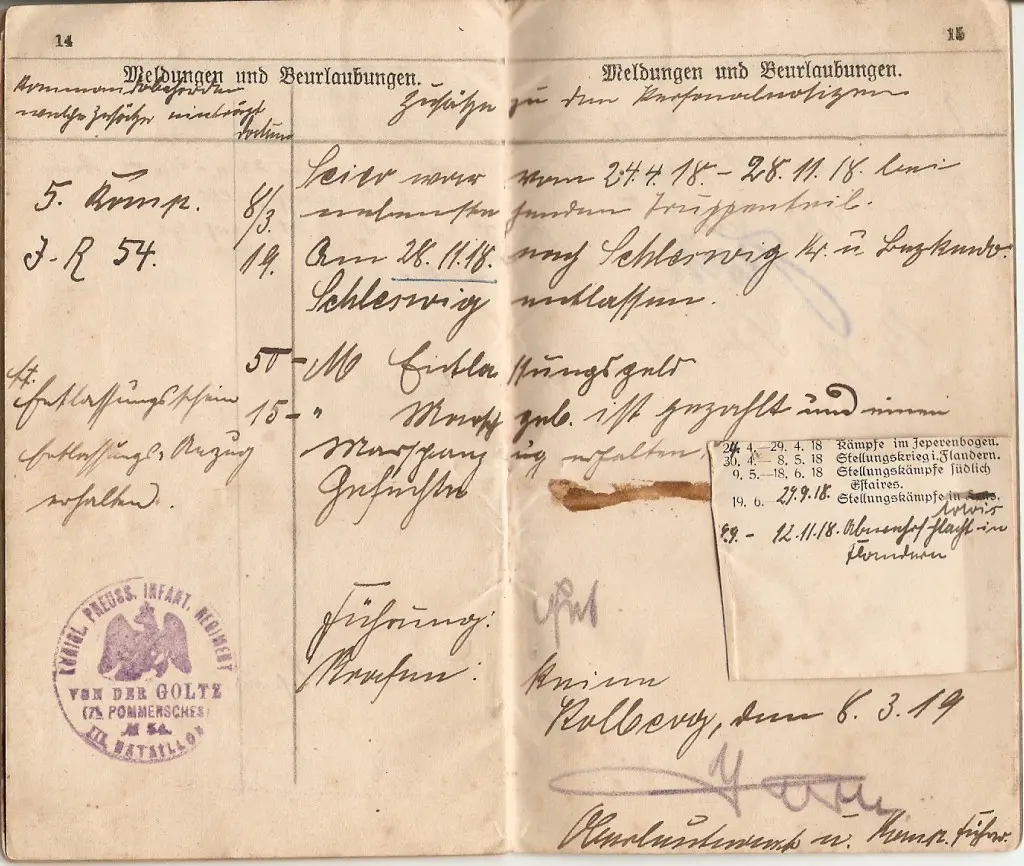 14
Meldungen und Beurlaubungen.
Kommandobehörde
welche Zusätze einträgt
Datum
5. Komp.
J. R 54.
8/3.
19.
Entlassungsschein
Entlassungs-Anzug
erhalten.
KÖNIGL. PREUSS. INFANT. REGIMENT
VON DER GOLTZ
(7. POMMERSCHES)
№ 54.
III. BATAILLON
15
Meldungen und Beurlaubungen.
Zusätze zu den Personalnotizen
war vom 24.4.18. - 28.11.18. bei
nebenstehenden Truppenteil.
Am 28.11.18. nach Schleswig Kr. u. Bezkmdo.
Schleswig entlassen.
50 - M Entlassungsgeld
15 - " Marschgeb. ist gezahlt und einen
Marschanzug erhalten.
Gefechte
24. 4.— 29. 4. 18 Kämpfe im Ieperenbogen.
30. 4.— 8. 5. 18 Stellungskrieg i. Flandern.
9. 5.—18. 6. 18 Stellungskämpfe südlich
Estaires.
19. 6. 27.9.18. Stellungskämpfe in
- 12.11.18. Abwehrschlacht in
Flandern
Führung: Gut
Strafen: Keine
Kolberg, den 8. 3. 19
Oberleutnant u. Komp. Führer.